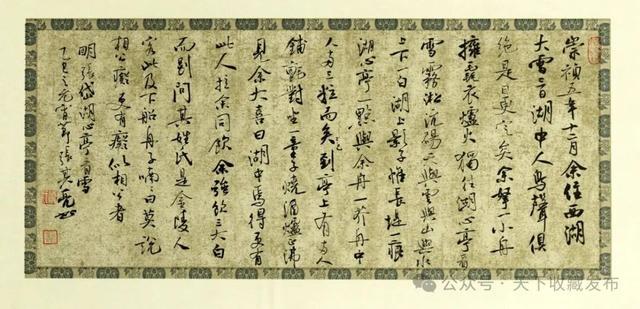 崇禎五年十二月余住西湖
大雪三日湖中人鳥聲俱
絕是日更定矣余拏一小舟
擁毳衣爐火獨往湖心亭看
雪霧淞沆碭天與雲與山與水
上下一白湖上影子惟長堤一痕
湖心亭一點與余舟一芥舟中
人兩三粒而矣到亭上有兩人
鋪氈對坐一童子燒酒爐正沸
見余大喜曰湖中焉得更有
此人拉余同飲余強飲三大白
而別問其姓氏是金陵人
客此及下船舟子喃喃曰莫說
相公癡更有癡似相公者
明張岱湖心亭看雪
乙巳元宵節張其
公众号·天下收藏发布